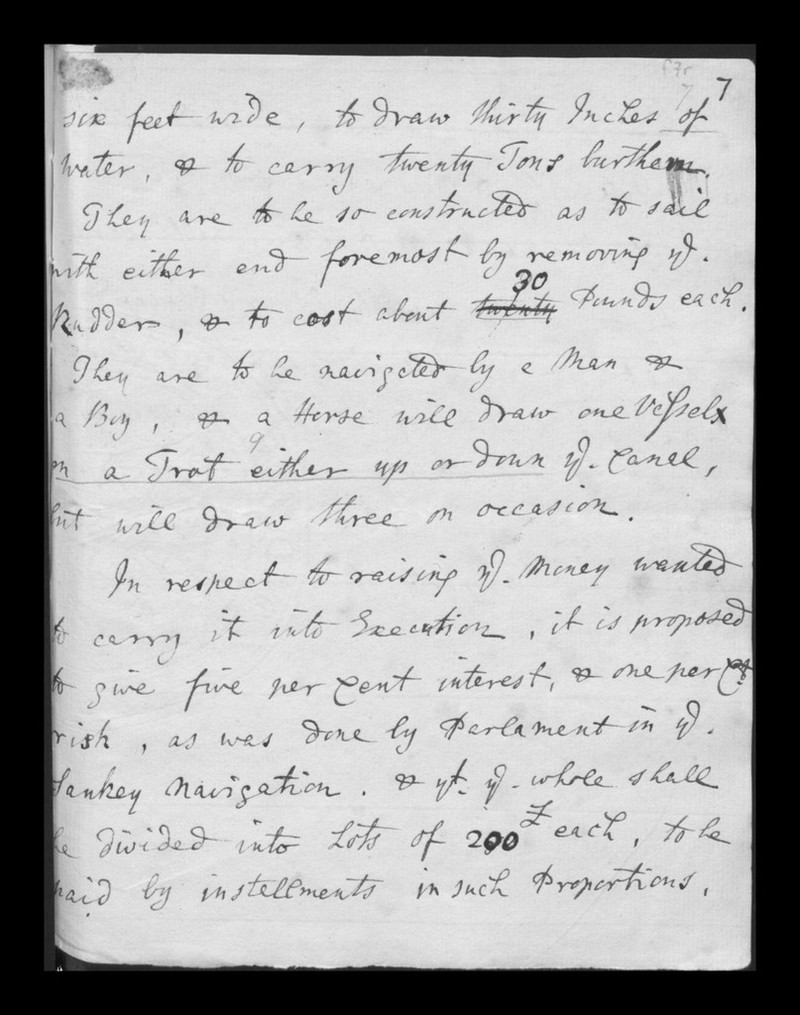 7
six feet wide, to draw thirty Inches of
Water, & to carry twenty Tons burthem.
They are to be so constructed as to sail
with either end foremost by removing ye.
Rudder, & to cost about twenty 30 Pounds each.
They are to be navigated by a Man &
a Boy, & a Horse will draw one Vessel
on a Trot either up or down ye. Canal,
but will draw three on occasion.
In respect to raising ye. Money wanted
to carry it into Execution, it is proposed
to give five per Cent interest, & one per Ct.
risk, as was done by Parlament in ye.
Sankey Navigation. & yt. ye. whole shall
be divided into Lots of 200£ each, to be
paid by installments in such Proportions,